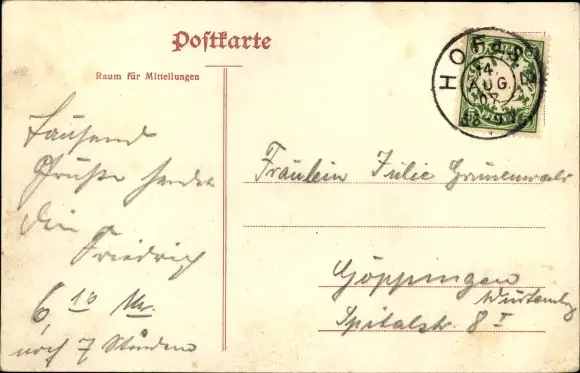 Postkarte
Raum für Mitteilungen
HOF
14.
AUG.
07
Tausend
Grüße sendet
Dein
Friedrich
6,10 Uhr
noch 7 Stunden
Fräulein Julie Grünenwald
Göppingen
Württembg
Spitalstr. 8 I